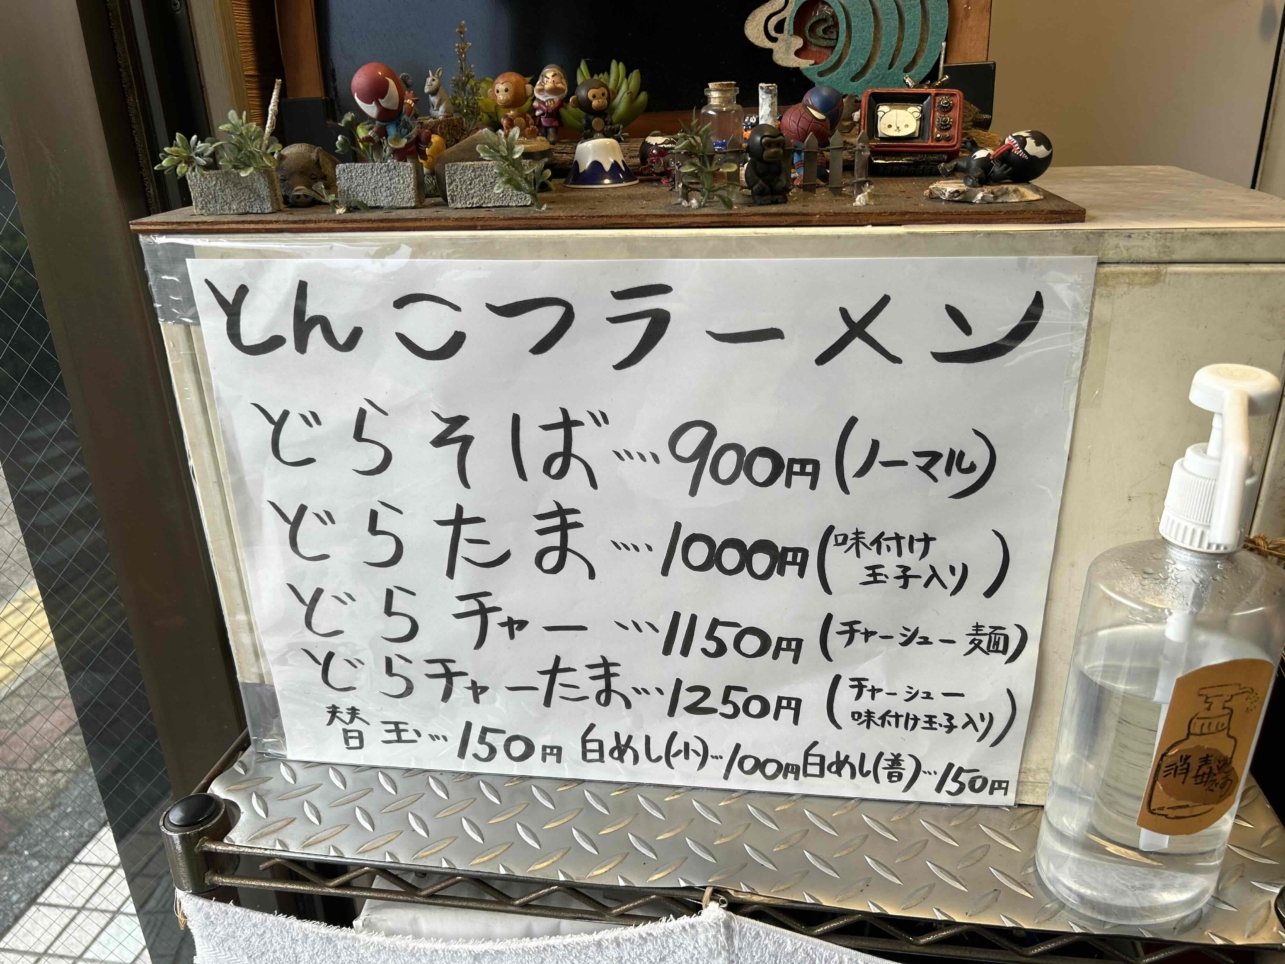 とんこつラーメン
どらそば…900円(ノーマル)
どらたま…1000円(味付け玉子入り)
どらチャー…1150円(チャーシュー麺)
どらチャーたま…1250円(チャーシュー味付け玉子入り)
替玉…150円 白めし(小)…100円 白めし(普)…150円